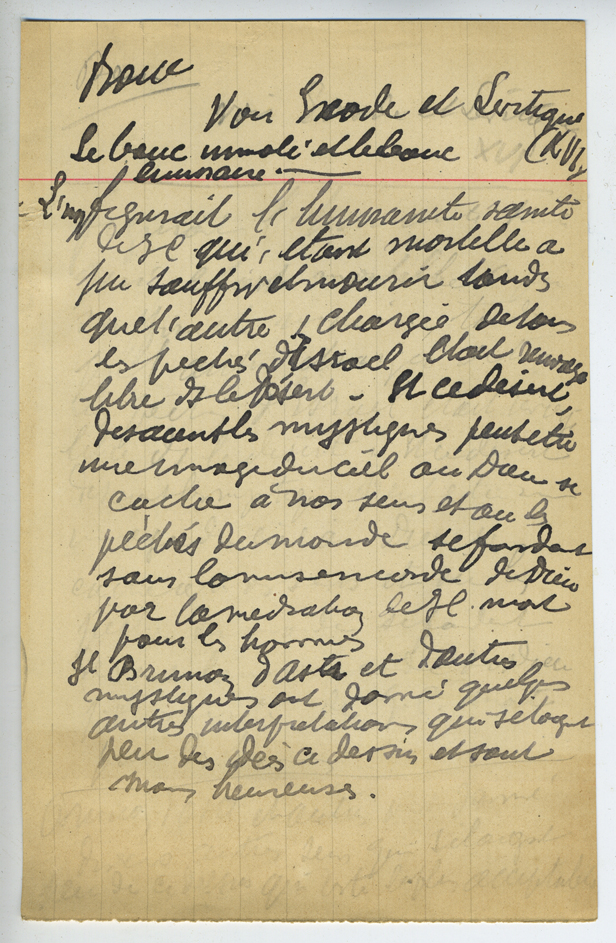 Bouc
Voir Exode et Levitique
(XVI)
Le bouc immolé et le bouc
émissaire. —
L'un figurait l'humanité sainte
de JC qui, étant mortelle a
pu souffrir et mourir tandis
que l'autre, chargé de tous
les péchés d'Israel était renvoyé
libre ds le Désert. Et ce désert,
disent les mystiques peut être
une image du ciel où Dieu se
cache à nos sens et où les
péchés du monde se fondent
dans la misericorde de Dieu
par la médiation de JC mort
pour les hommes
St Bruno d'Asti et d'autres
mystiques ont donné quelques
autres interprétations qui s'éloignent
peu des idées ci dessus et sont
moins heureuses.